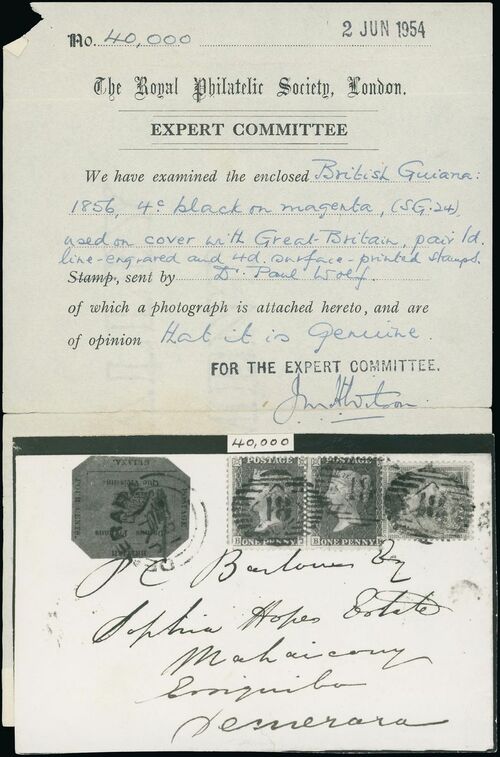 No. 40,000
2 JUN 1954
The Royal Philatelic Society, London.
EXPERT COMMITTEE
We have examined the enclosed British Guiana:
1856, 4c black on magenta, (SG.24)
used on cover with Great-Britain, pair 1d.
line-engraved and 4d. surface-printed stamps.
Stamp, sent by Dr. Paul Wolf.
of which a photograph is attached hereto, and are
of opinion that it is genuine.
FOR THE EXPERT COMMITTEE.
40,000
POSTAGE POSTAGE
ONE PENNY ONE PENNY
P E Barlowe Esq
Sophia Hopes Estate
Mahaicony
Essequibo
Demerara